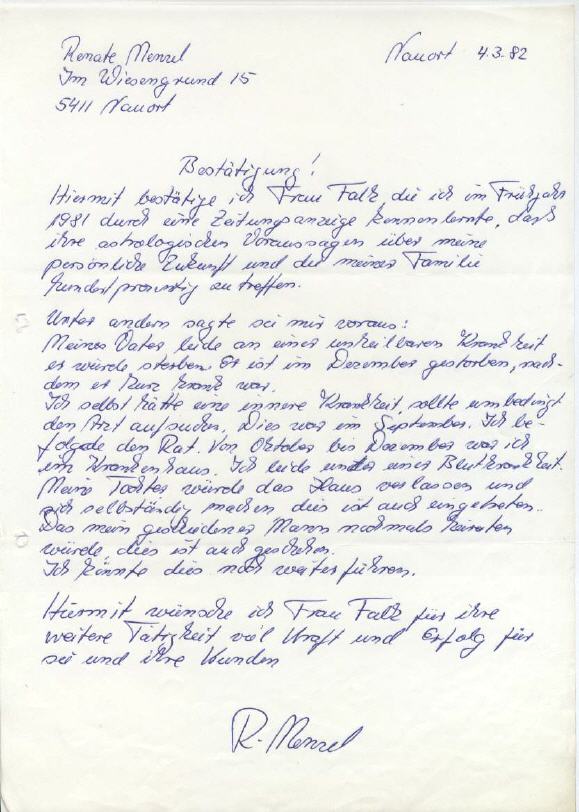 Renate Menzel
Nauort 4.3.82
Im Wiesengrund 15
5411 Nauort
Bestätigung!
Hiermit bestätige ich Frau Falk, die ich im Frühjahr
1981 durch eine Zeitungsanzeige kennen lernte, daß
ihre astrologischen Voraussagen über meine
persönliche Zukunft und die meiner Familie
hundertprozentig zu treffen.
Unter andern sagte sei mir voraus:
Meiner Vater leide an einer unheilbaren Krankheit
er würde sterben. Er ist im Dezember gestorben, nach-
dem er kurz krank war.
Ich selbst hätte eine innere Krankheit, sollte umbedingt
den Arzt aufsuchen. Dies war im September. Ich be-
folgde den Rat. Von Oktober bis Dezember war ich
im Krankenhaus. Ich leide unter einer Blutkrankheit.
Meine Tochter würde das Haus verlassen und
sich selbständig machen, dies ist auch eingetreten.
Das mein geschiedener Mann nochmals heiraten
würde, dies ist auch geschehen.
Ich könnte dies noch weiter führen.
Hiermit wünsche ich Frau Falk für ihre
weitere Tätigkeit viel Kraft und Erfolg für
sei und ihre Kunden
R. Menzel